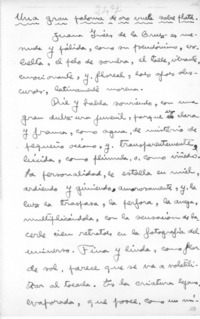 Una gran paloma de oro vuela sobre plata.
Juana Inés de la Cruz es me-
nuda y pálida, como su pseudónimo, es-
belta, el pelo de sombra, el talle, vibrante,
emocionante, y, floreal, los ojos obs-
curos, latinamente morena.
Ríe y habla sonriendo, con una
gran dulzura juvenil, porque es clara
y franca, como agua, de misterio de
pequeño océano, y, transparentemente,
lúcida, como
la personalidad, le estalla en mil,
ardiendo y gimiendo amorosamente, y, la
luz la traspasa, la perfora, la
multiplicándola, con la sensación de la
en la fotografía del
universo. Fina y linda, como flor
de sol, parece que se va a volatili-
zar al tocarla. Es la criatura lejana,
evaporada, que posee, como un